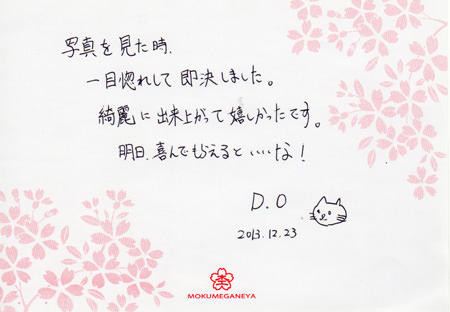 写真を見た時、
一目惚れして即決しました。
綺麗に出来上がって嬉しかったです。
明日、喜んでもらえるといいな!
D.O
2013.12.23
MOKUMEGANEYA